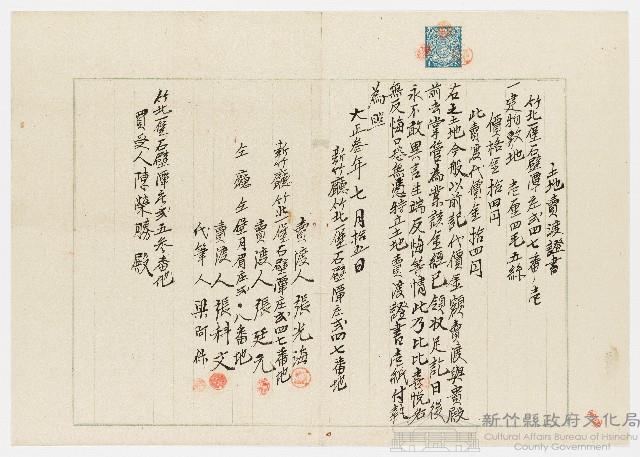 土地賣渡證書
竹北堡石壁潭庄貳四七番ノ壱
一建物敷地 壱厘四毛五絲
價格金拾四円
此賣渡代價金拾四円
右之土地今般以前記代價金額賣渡與貴殿
前去掌管為業該金經已領收足訖日後
永不敢異言生端反悔等情此乃比比喜悅各
無反悔口恐無憑特立土地賣渡證書壱紙付執
為照
大正叁年七月拾五日
新竹廳竹北堡石壁潭庄貳四七番地
賣渡人 張光海
新竹廳竹北堡石壁潭庄貳四七番地
賣渡人 張廷充
仝廳仝堡月眉庄貳〇八番地
賣渡人 張科文
代筆人 梁阿保
竹北堡石壁潭庄貳五叁番地
買受人 陳榮勝 殿
新竹縣政府文化局
Cultural Affairs Bureau of Hsinchu
County Government